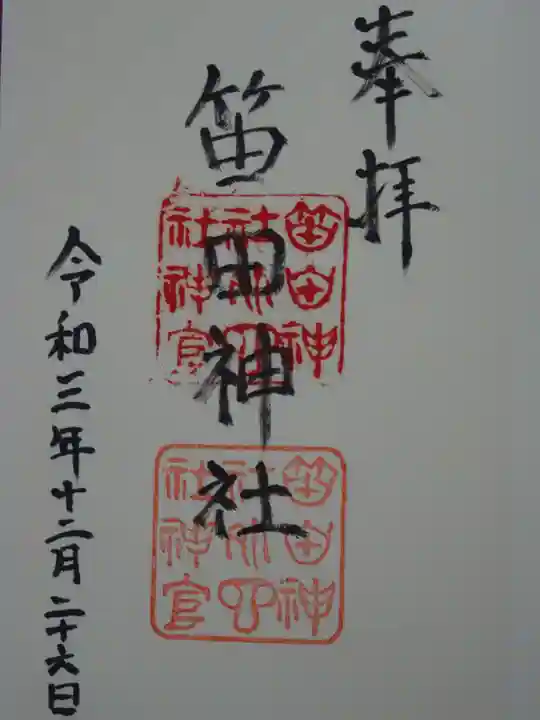 奉拝
笛田神社
令和三年十二月二十六日
笛田神
社
社神官
笛田神
社
社神官